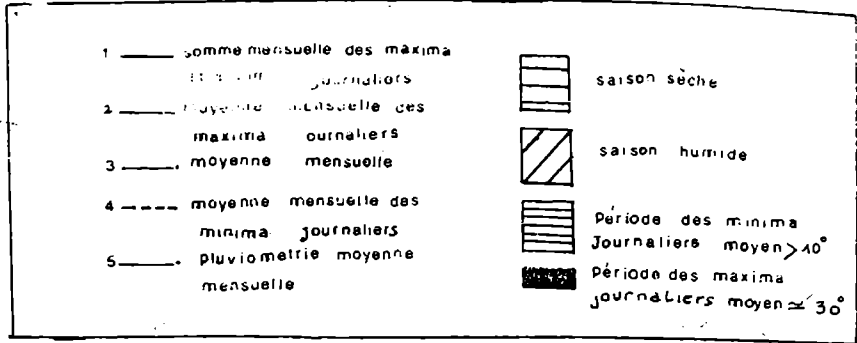 1 —— somme mensuelle des maxima
journaliers
2 —— moyenne mensuelle des
maxima ournaliers
3 ——. moyenne mensuelle
4 ---- moyenne mensuelle des
minima journaliers
5 ——. pluviometrie moyenne
mensuelle
saison sèche
saison humide
Période des minima
Journaliers moyen > 10°
Période des maxima
journaliers moyen ≃ 30°